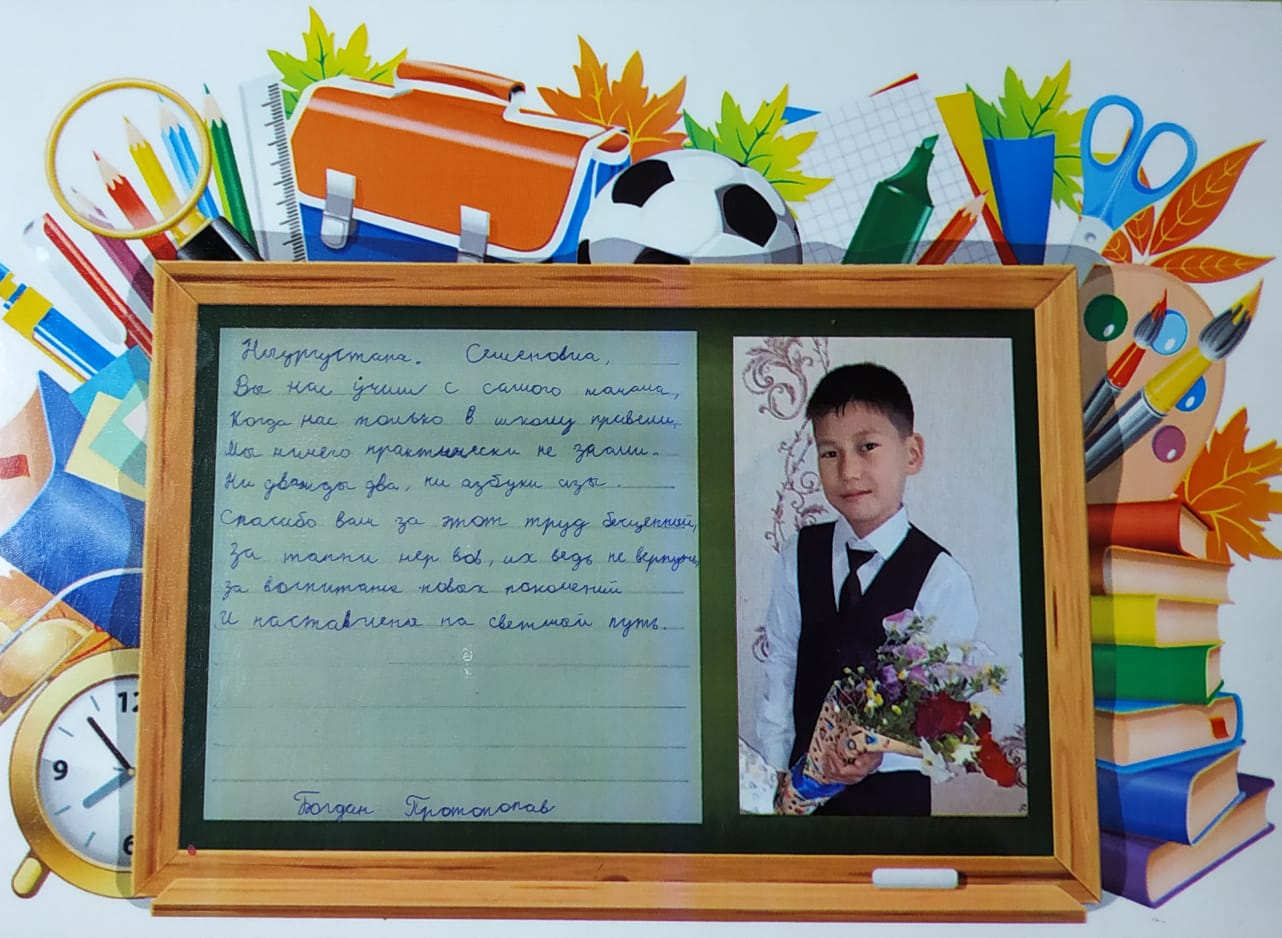 Ньургустана. Семеновна,
Вы нас учили с самого начала,
Когда нас только в школу привели,
Мы ничего практически не знали.
Ни дважды два, ни азбуки азы.
Спасибо вам за этот труд бесценный,
За тапки нер вов, их ведь не вернуть,
За воспитание новых поколений
И наставление на светлый путь.
Богдан Протопопав
12
9
6